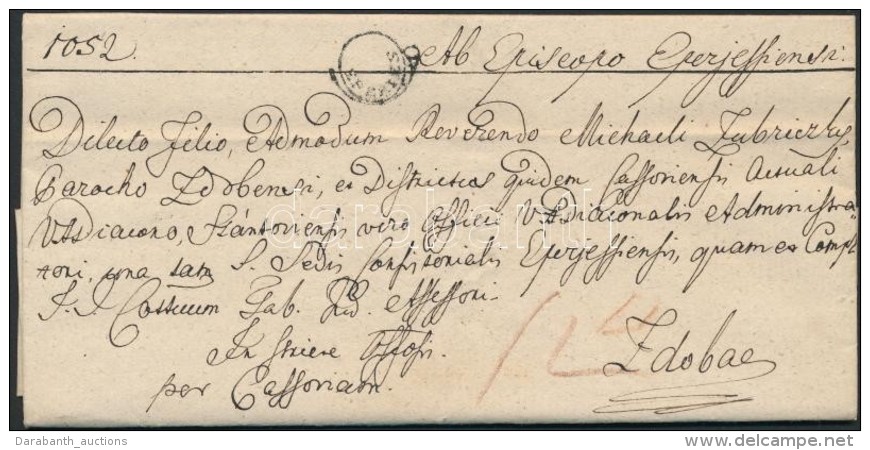 1052.
Ab Episcopo Eperjessiensi:
EPERIES
Dilecto Filio, Admodum Reverendo Michaeli
Parocho Zdobensi, et Districtus quidem Cassoviensis Actuali
VADiacono, Szántoviensis vero Officii VADiaconalis Administra-
toni, una tam S. Sedis Consistorialis Eperjessiensis, quam et
I. I. Cottuum Tab. Jud. Assessori.
In serie Offosi.
per Cassoviam.
Zdobae
darabanth
Darabanth_auctions
delcampe.net